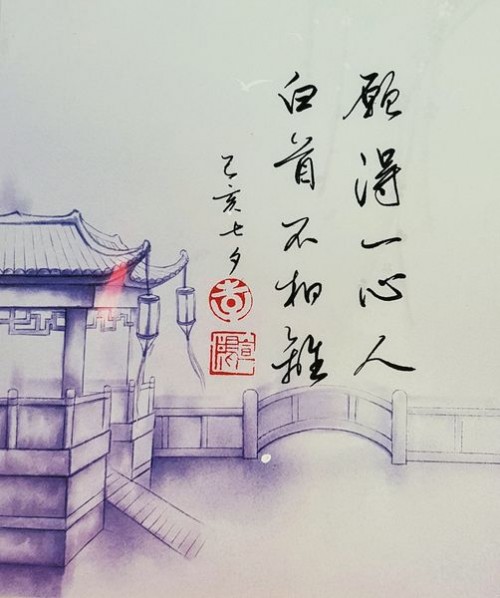 願得一心人
白首不相離
己亥七夕